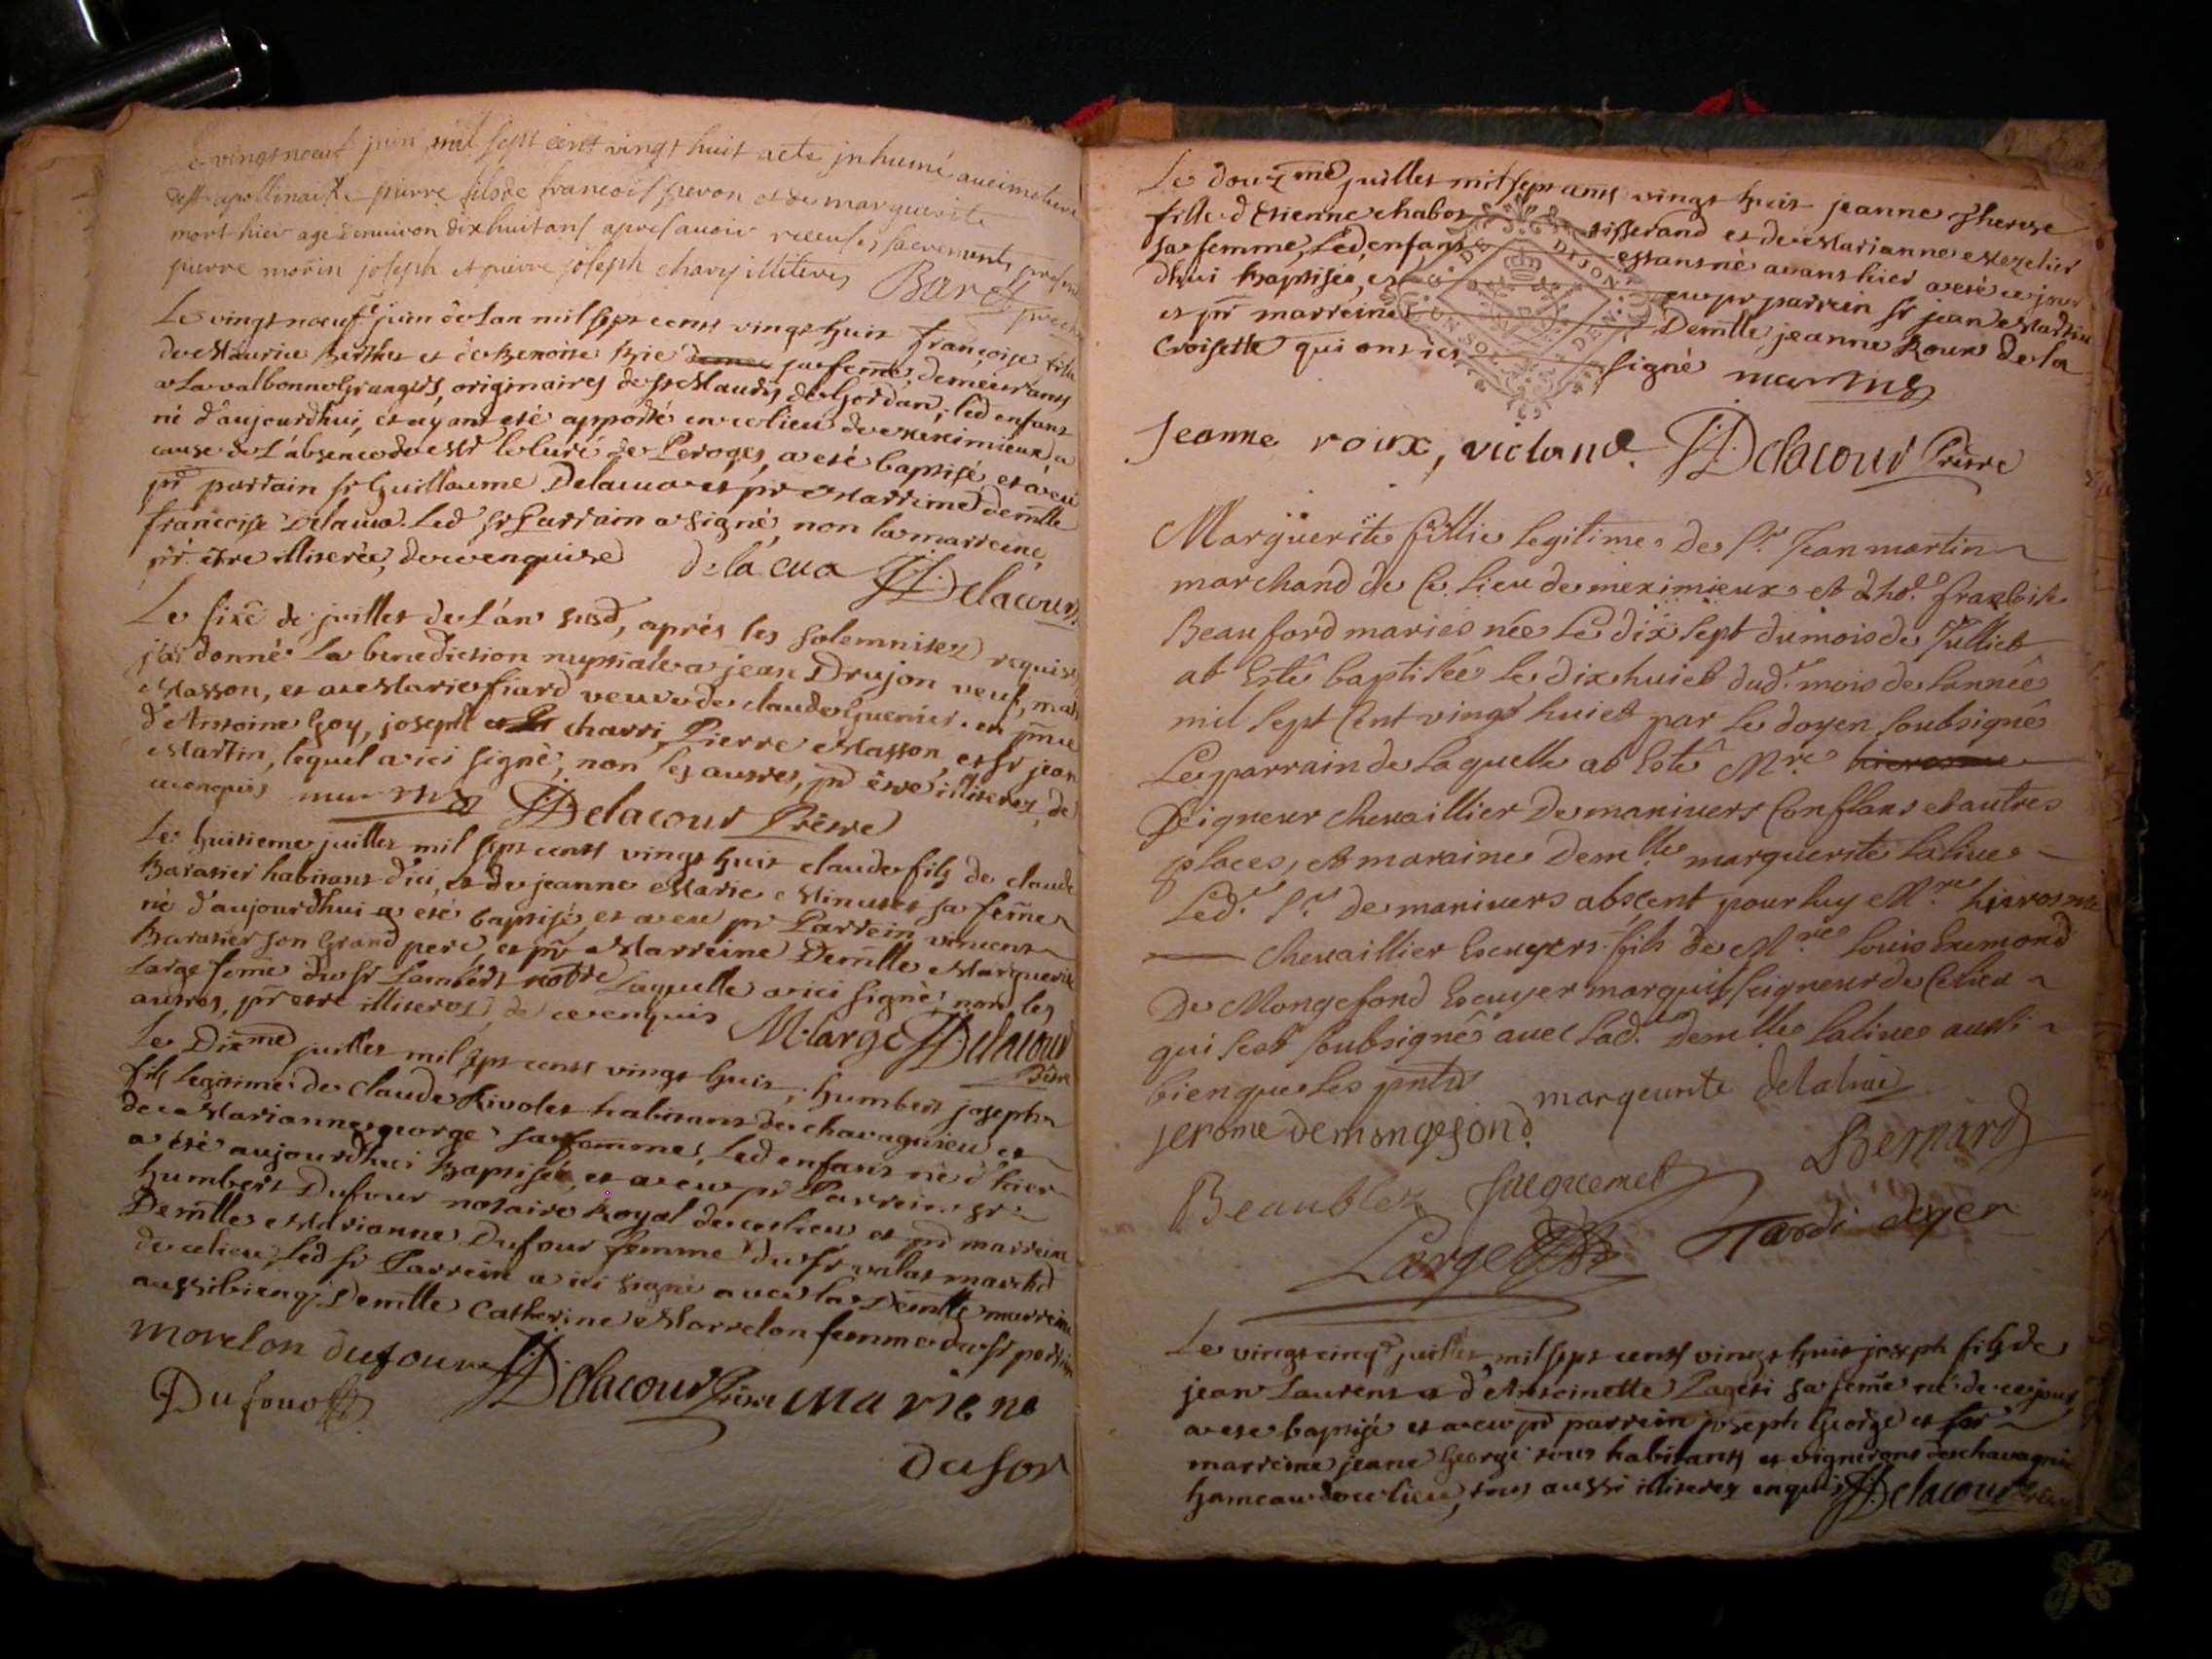 Le vingt noeuf juin mil sept cent vingt huit acte inhumé au cimetiere
de st apollinaire pierre fils de francois peron et de marguerite
mort hier agé denuiron dix huit ans apres auoir receu les sacrements presents
pierre morin joseph et pierre joseph charvy illiteres Barel
Le vingt noeufe juin de l'an mil sept cents vingt huit françoise fille
de Maurice Berthet et de Benoite sa feme, demeurants
a la valbonne Grangers, originaires de st Mauris de Gordan; led enfant
né d'aujourdhui, et ayant eté apporté en ce lieu de meximieux a
cause de l'absence de Mr le Curé de Peroges, a eté baptisé, et a eu
pr parrain sr Guillaume Delacua et pr Marreine demlle
françoise Delacua. Led sr Parrain a signé, non la marreine,
pr être illiterée, de ce enquise delacua Delacour
Le sixe de juillet de l'an susd, aprés les solemnitez requises
j'ai donné la benediction nuptiale a jean Drujon veuf, mar
Masson, et a Marie fiard veuve de claude Guenier. en pnce
d'Antoine Goy, joseph charri, Pierre Masson, et sr jean
Martin, lequel a ici signé, non les autres, pr être illiterez, de
ce enquis martin Delacour Prêtre
Le huitieme juillet mil sept cents vingt huit claude fils de claude
Baratier habitant d'ici, et de jeanne Marie Minuet sa feme
né d'aujourdhui a eté baptisé, et a eu pr Parrein vincent
Baratier son Grand pere, et pr Marreine Demlle Marguerite
Large feme du sr Lambert notre laquelle a ici signé, non les
autres, pr etre illiterez, de ce enquis M. large Delacour
Prêtre
Le Dixme juillet mil sept cents vingt huit, humbert joseph
fils legitime de claude Rivolet habitant de chavagnieu et
de Marianne george sa femme, Led enfant né d'hier
a été aujourdhui Baptisé, et a eu pr Parrein sr
humbert Dufour notaire Royal de ce lieu et pr marreine
Demlle Marianne Dufour femme du sr valat marchd
de ce lieu, Led sr Parrein a ici signé avec la Demlle marreine
aussi bien q Demlle Catherine Morrelon femme du sr
morelon dufour Delacour Prêtre mariene
Dufour dufor
Le douzme juillet mil sept cents vingt huit jeanne Therese
fille d'Etienne chabot tisserand et de Marianne
sa femme, Led, enfant estant né avant hier a eté ce jour
dhui Baptisée, et eu pr parrein sr jean Martin
et pr marreine Demlle jeanne Roux de la
Croisette qui ont ici signé martin
DE DIJON
Jeanne roux, victand. Delacour Prêtre
Marguerite fillie legitime de Sr. Jean martin
marchand de Ce lieu de meximieux et d'ho. francoise
Beauford mariés née Le dix sept du mois de Julliet
at Esté baptisée Le dix huiet dud. mois de lannée
mil sept Cent vingt huiet par Le doyen soubsigné
Le parrain de laquelle at Esté Mre hierosme
Seigneur chevaillier de manivers Conflans et autres
places, Et maraine Demlle marguerite Lalive
Led. Sr. de manivers abscent pour luy Mre hierosme
Chevaillier Escuyers fils de Mre Louis Exmond
De Mongefond Escuyer marquis seigneur de Ce lieu
qui s'est soubsigné avec lad. Demlle Lalive aussi
bien que les pnts marguerite delalive
jerome de mongefond Bernard
Beaublez Jacquemet
Large Tardi doyen
Le vingt cinqe juillet mil sept cents vingt huit joseph fils de
jean Laurent et d'Antoinette Pageri sa feme né de ce jour
a ete baptisé et a eu pr parrein joseph George et pr
marreine jeane George tous habitants et vignerons de chavagnieu
hameau de ce lieu, tous aussi illiterez enquis Delacour Prêtre